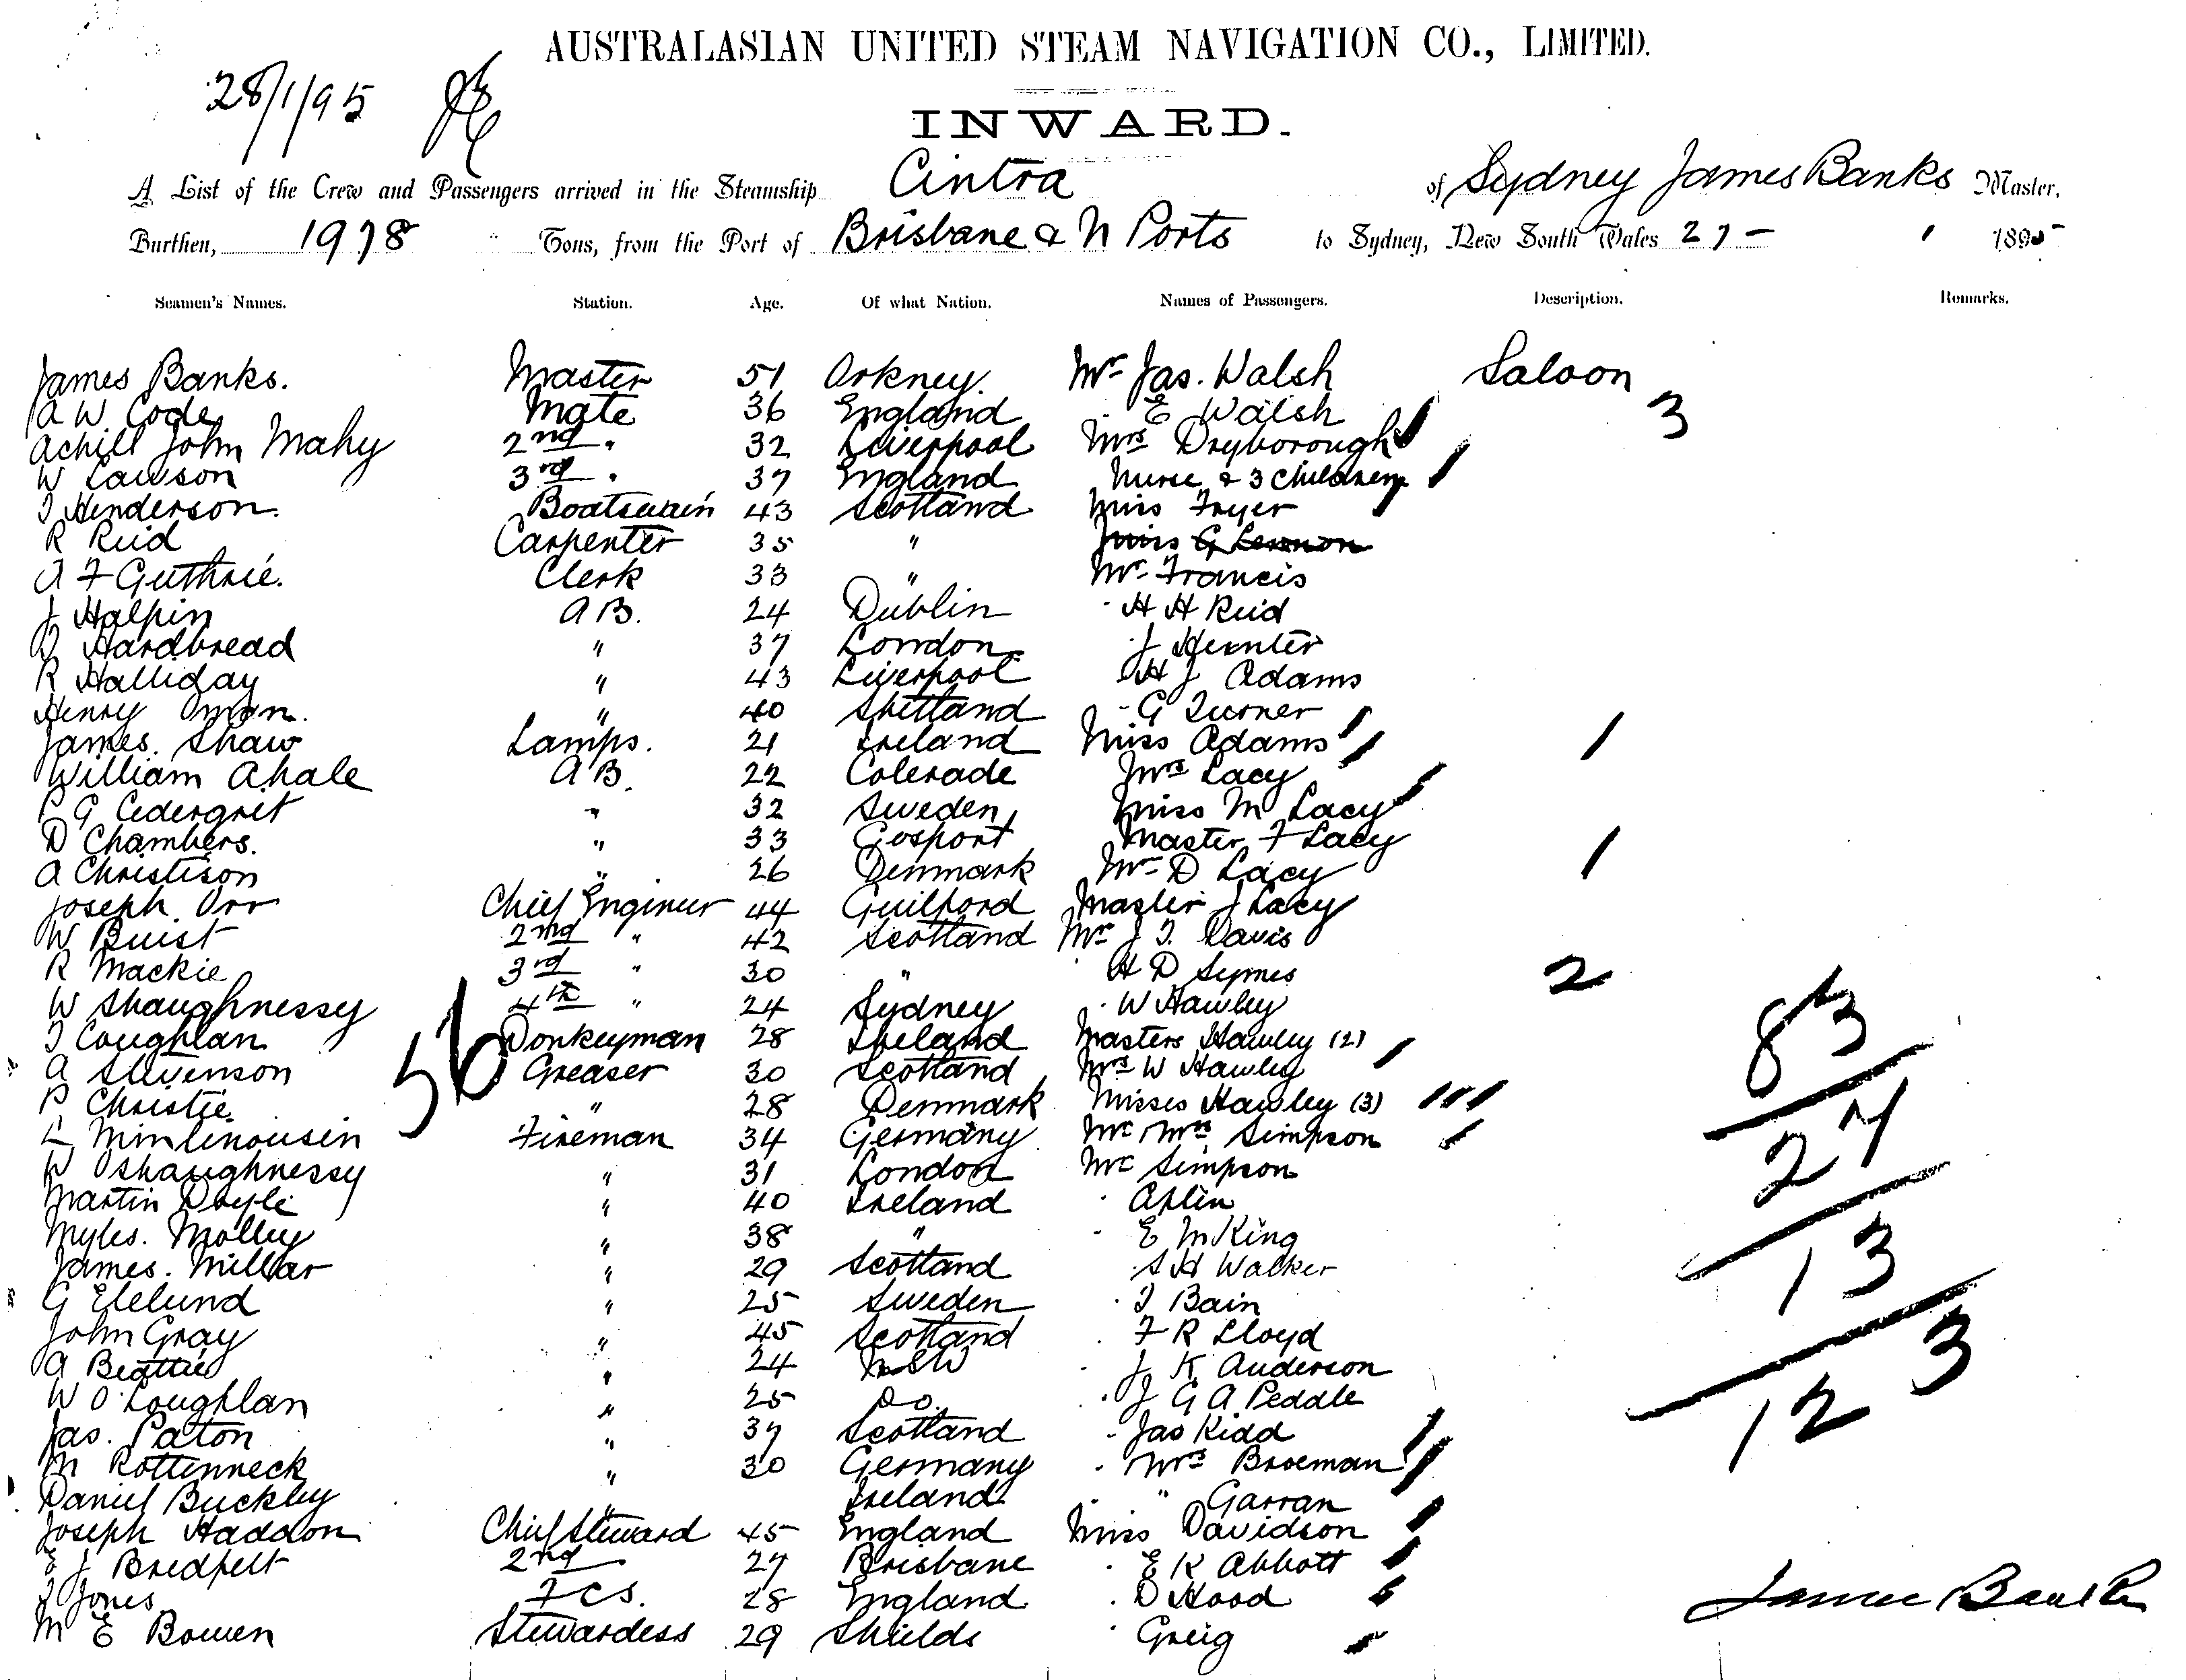 AUSTRALASIAN UNITED STEAM NAVIGATION CO., LIMITED.
28/1/95
INWARD.
A List of the Crew and Passengers arrived in the Steamship Cintra of Sydney James Banks Master,
Burthen, 1978 Tons, from the Port of Brisbane & N Ports to Sydney, New South Wales 27 - 1 1895
Seamen's Names. Station. Age. Of what Nation. Names of Passengers. Description. Remarks.
James Banks. Master 51 Orkney. Mr Jas. Walsh Saloon
A W Code Mate 36 England E Walsh 3
Achill John Mahy 2nd " 32 Liverpool Mrs Dryborough
W Lawson 3rd " 37 England Nurse & 3 Children
J Henderson. Boatswain 43 Scotland Miss Fryer
R Reid Carpenter 35 " Miss G Lennon
A F Guthrie. Clerk 33 " Mr Francis
J Halpin A B. 24 Dublin " H H Reid
Hardbread " 37 London " J Hunter
R Halliday " 43 Liverpool " H J Adams
Henry Oman. " 40 Shetland " G Turner
James. Shaw Lamps. 21 Ireland Miss Adams
William Ahale A B. 22 Colerade Mrs Lacy
P G Cedergret " 32 Sweden Miss M Lacy
D Chambers. " 33 Gosport Master F Lacy
A Christison " 26 Denmark Mr D Lacy
Joseph Orr Chief Engineer 44 Guilford Master J Lacy
W Buist 2nd " 42 Scotland Mr J T. Davis
R Mackie 3rd " 30 " " H D Symes 2
W Shaughnessy 4th " 24 Sydney " W Hawley 83
J Coughlan 56 Donkeyman 28 Ireland Masters Hawley (2)
A Stevenson Greaser 30 Scotland Mrs W Hawley
P Christie " 28 Denmark Misses Hawley (3) 27
Fireman 34 Germany Mr Mrs Simpson
W OShaughnessy " 31 London Mr Simpson
Martin Doyle " 40 Ireland " Aplin
Myles. Molley " 38 " " E M King 13
James. Millar " 29 Scotland " S H Walker
G Elelund " 25 Sweden " J Bain
John Gray " 45 Scotland " F R Lloyd
A Beattie " 24 NSW " J K Anderson
W O'Loughlan " 25 Do. " J G A Peddle 123
Jas. Paton " 37 Scotland " Jas Kidd
M Rottenneck " 30 Germany " Mrs Broeman
Daniel Buckley " Ireland " " Garran
Joseph Haddon Chief Steward 45 England Miss Davidson
E J Bredfelt 2nd 27 Brisbane " E K Abbott
J Jones F C S. 28 England " D Hood
M E Bowen Stewardess 29 Shields " Greig
James Banks